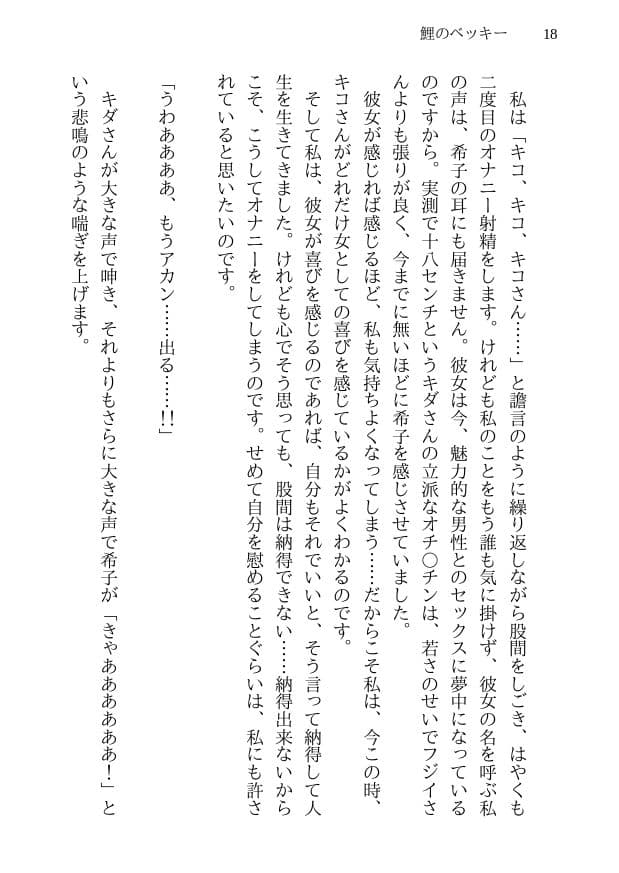 鯉のベッキー　18
　私は「キコ、キコ、キコさん……」と譫言のように繰り返しながら股間をしごき、はやくも
二度目のオナニー射精をします。けれども私のことをもう誰も気に掛けず、彼女の名を呼ぶ私
の声は、希子の耳にも届きません。彼女は今、魅力的な男性とのセックスに夢中になっている
のですから。実測で十八センチというキダさんの立派なオチ〇チンは、若さのせいでフジイさ
んよりも張りが良く、今までに無いほどに希子を感じさせていました。
　彼女が感じれば感じるほど、私も気持ちよくなってしまう……だからこそ私は、今この時、
キコさんがどれだけ女としての喜びを感じているかがよくわかるのです。
　そして私は、彼女が喜びを感じるのであれば、自分もそれでいいと、そう言って納得して人
生を生きてきました。けれども心でそう思っても、股間は納得できない……納得出来ないから
こそ、こうしてオナニーをしてしまうのです。せめて自分を慰めることぐらいは、私にも許さ
れていると思いたいのです。
「うわああああ、もうアカン……出る……!!」
　キダさんが大きな声で呻き、それよりもさらに大きな声で希子が「きゃああああああ！」と
いう悲鳴のような喘ぎを上げます。